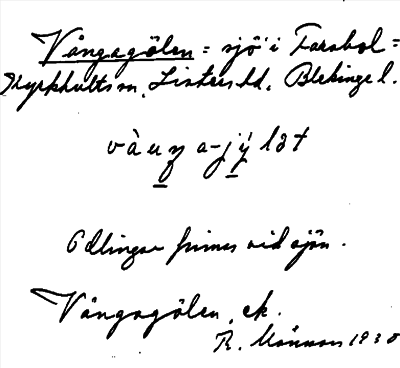 Vångagölen = sjö i Farabol =
Kyrkhults sn. Listers hd. Blekinge l.
Odlingar finnas vid sjön.
Vångagölen, ek.
R. 1930